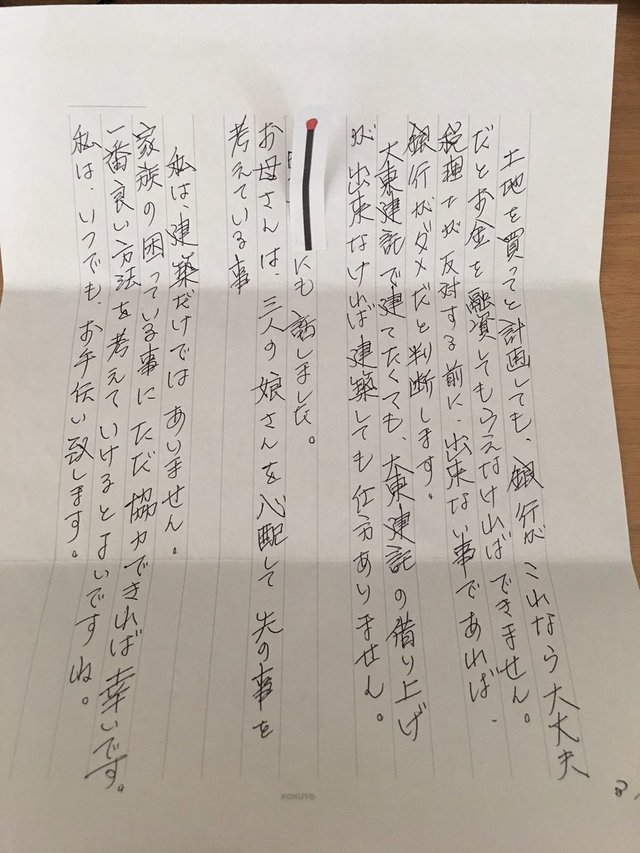 土地を買ってと計画しても、銀行がこれなら大丈夫
だとお金を融資してもらえなければできません。
税理士が反対する前に、出来ない事であれば、
銀行がダメだと判断します。
大東建託で建てたくても、大東建託の借り上げ
が出来なければ建築しても仕方ありません。
にも話しました。
お母さんは、三人の娘さんを心配して先の事を
考えている事
私は、建築だけではありません。
家族の困っている事にただ協力できれば幸いです。
一番良い方法を考えていけるとよいですね。
私は、いつでも、お手伝い致します。
KOKUYO